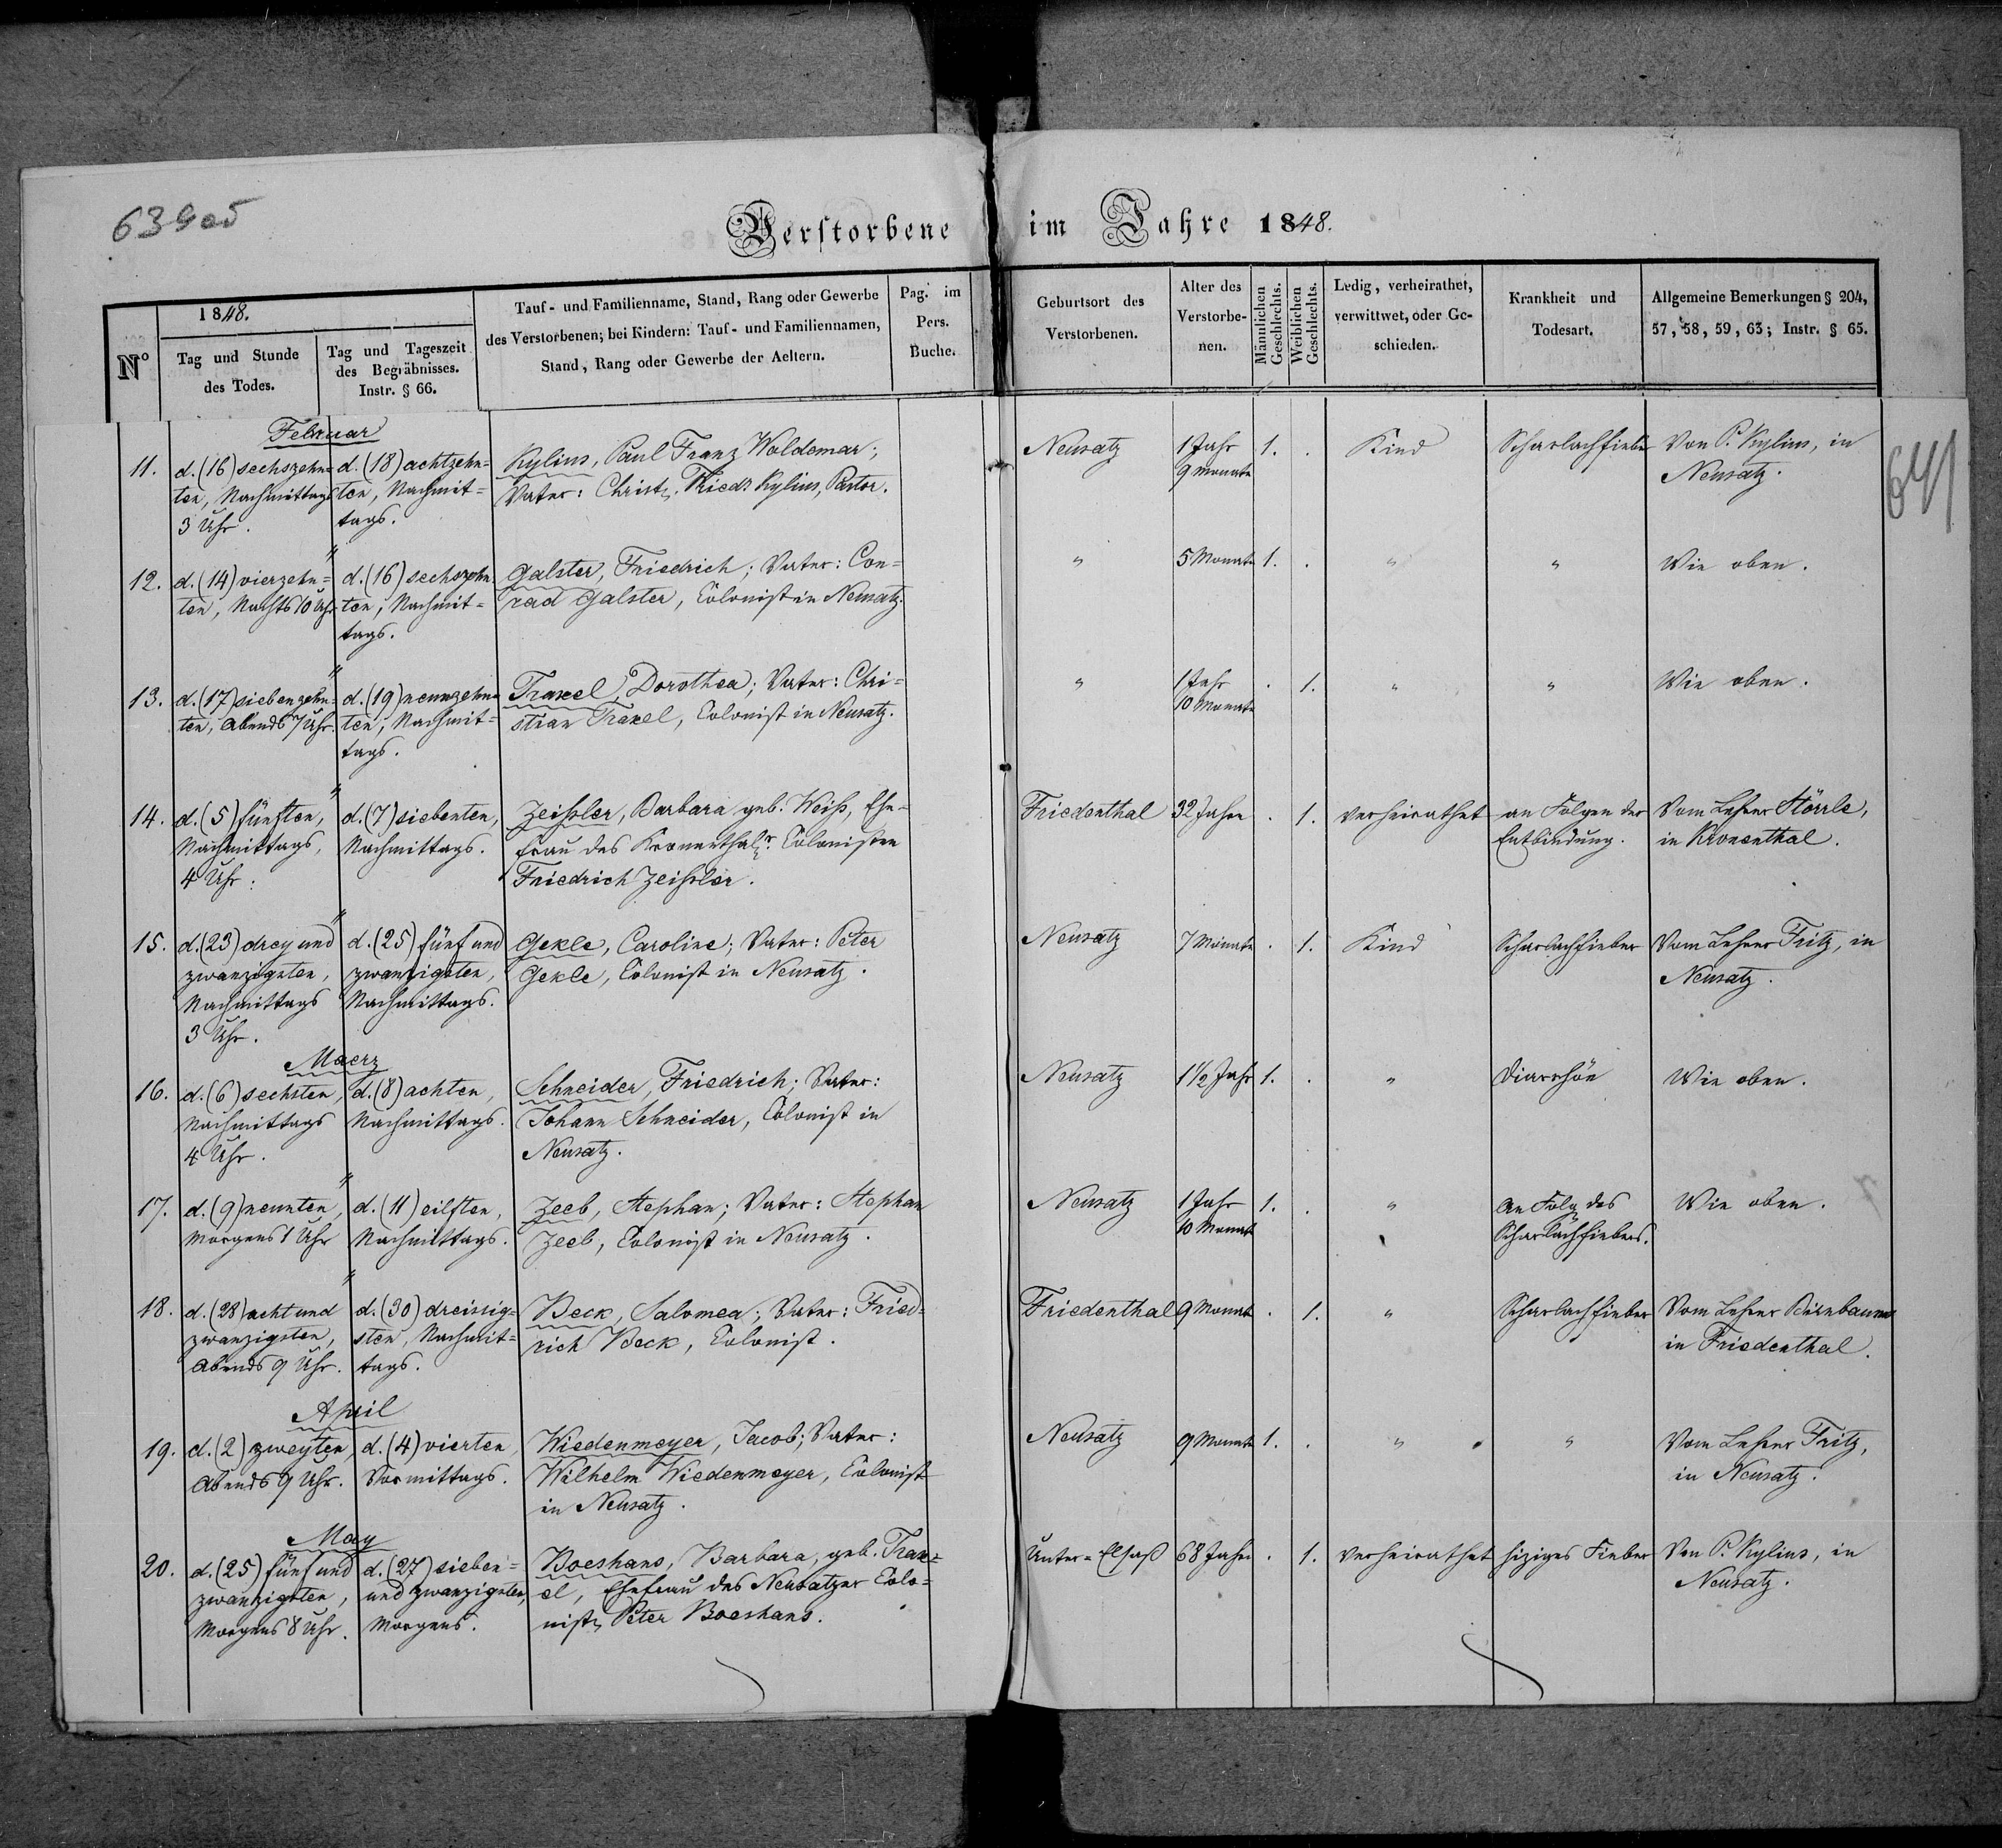 639 05
Verstorbene im Jahre 1848.
Nº
1848.
Tag und Stunde
des Todes.
Tag und Tageszeit
des Begräbnisses.
Instr. § 66.
Tauf- und Familienname, Stand, Rang oder Gewerbe
des Verstorbenen; bei Kindern: Tauf- und Familiennamen,
Stand, Rang oder Gewerbe der Aeltern.
Pag. im
Pers.
Buche.
Geburtsort des
Verstorbenen.
Alter des
Verstorbe-
nen.
Männlichen
Geschlechts.
Weiblichen
Geschlechts.
Ledig, verheirathet,
verwittwet, oder Ge-
schieden.
Krankheit und
Todesart.
Allgemeine Bemerkungen § 204,
57, 58, 59, 63; Instr. § 65.
641
Februar
11. d. (16) sechszehn=
ten, Nachmittags
3 Uhr.
d. (18) achtzehn=
ten, Nachmit=
tags.
Kylius, Paul Franz Woldemar;
Vater: Christ. Friedr. Kylius, Pastor.
Neusatz
1 Jahr
9 Monate
1. .
Kind
Scharlachfieber
Von P. Kylius, in
Neusatz.
"
12. d. (14) vierzehn=
ten, Nachts 10 Uhr
d. (16) sechszehn=
ten, Nachmit=
tags.
Galster, Friedrich; Vater: Con=
rad Galster, Colonist in Neusatz.
" 5 Monate 1. . " " Wie oben.
"
13. d. (17) siebenzehn=
ten, Abends 7 Uhr.
d. (19) neunzehn=
ten, Nachmit=
tags.
Traxel, Dorothea; Vater: Chri=
stian Traxel, Colonist in Neusatz.
"
1 Jahr
10 Monate
. 1. " " Wie oben.
"
14. d. (5) fünften,
Nachmittags,
4 Uhr.
d. (7) siebenten,
Nachmittags.
Zeißler, Barbara geb. Weiß, Ehe=
frau des Kronenthalr. Colonisten
Friedrich Zeißler.
Friedenthal 32 Jahre . 1. verheirathet
an Folgen der
Entbindung.
Vom Lehrer Störrle,
in Kronenthal.
"
15. d. (23) drey und
zwanzigsten,
Nachmittags
3 Uhr.
d. (25) fünf und
zwanzigsten,
Nachmittags.
Gekle, Caroline; Vater: Peter
Gekle, Colonist in Neusatz.
Neusatz 7 Monate . 1. Kind Scharlachfieber
Vom Lehrer Fritz, in
Neusatz.
Maerz
16. d. (6) sechsten,
Nachmittags
4 Uhr.
d. (8) achten,
Nachmittags.
Schneider, Friedrich; Vater:
Johann Schneider, Colonist in
Neusatz.
Neusatz 1 1/2 Jahr 1. . " Diarrhöe Wie oben.
"
17. d. (9) neunten,
Morgens 1 Uhr
d. (11) eilften,
Nachmittags.
Zeeb, Stephan; Vater: Stephan
Zeeb, Colonist in Neusatz.
Neusatz
1 Jahr
10 Monat
1. . "
An Folg des
Scharlachfiebers.
Wie oben.
"
18. d. (28) acht und
zwanzigsten,
Abends 9 Uhr.
d. (30) dreissig=
sten, Nachmit=
tags.
Beck, Salomea; Vater: Fried=
rich Beck, Colonist.
Friedenthal 9 Monat . 1. " Scharlachfieber
Vom Lehrer Birnbaum
in Friedenthal.
April
19. d. (2) zweyten,
Abends 9 Uhr.
d. (4) vierten,
Vormittags.
Wiedenmeyer, Jacob; Vater:
Wilhelm Wiedenmeyer, Colonist
in Neusatz.
Neusatz 9 Monate 1. . " "
Vom Lehrer Fritz,
in Neusatz.
May
20. d. (25) fünf und
zwanzigsten,
Morgens 8 Uhr.
d. (27) sieben=
und zwanzigsten,
Morgens.
Boeshans, Barbara, geb. Trax=
el, Ehefrau des Neusatzer Colo=
nist. Peter Boeshans.
Unter=Elsaß 68 Jahre . 1. verheirathet hiziges Fieber
Von P. Kylius, in
Neusatz.